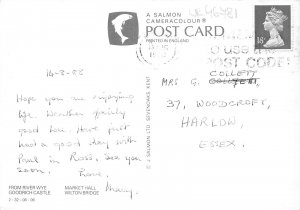 A SALMON
CAMERACOLOUR®
POST CARD
PRINTED IN ENGLAND
14-3-88
Hope you are enjoying
life. Weather fairly
good too. Have just
had a good day with
in Ross. See you
soon.
Love,
FROM RIVER WYE
GOODRICH CASTLE
MARKET HALL
WILTON BRIDGE
2-32-00-06
© J SALMON LTD SEVENOAKS KENT
18P
TO USE THE
POST CODE
COLLETT
MRS G.
37, WOODCROFT,
HARLOW,
ESSEX.